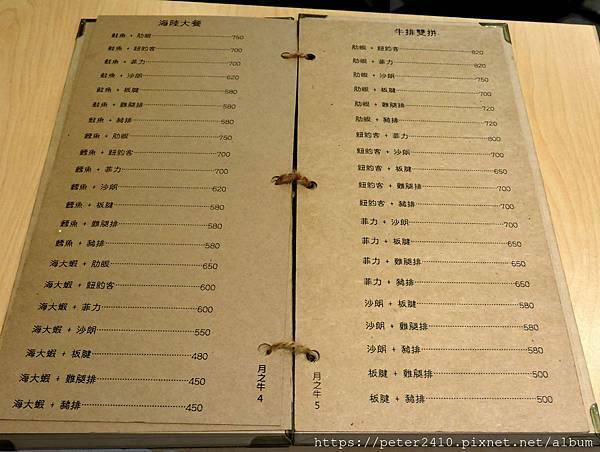 海陸大餐
鮭魚 + 肋眼 750
鮭魚 + 鈕約客 700
鮭魚 + 菲力 700
鮭魚 + 沙朗 620
鮭魚 + 板腱 580
鮭魚 + 雞腿排 580
鮭魚 + 豬排 580
鱈魚 + 肋眼 750
鱈魚 + 鈕約客 700
鱈魚 + 菲力 700
鱈魚 + 沙朗 620
鱈魚 + 板腱 580
鱈魚 + 雞腿排 580
鱈魚 + 豬排 580
海大蝦 + 肋眼 650
海大蝦 + 鈕約客 600
海大蝦 + 菲力 600
海大蝦 + 沙朗 550
海大蝦 + 板腱 480
海大蝦 + 雞腿排 450
海大蝦 + 豬排 450
月之牛 4
牛排雙拼
肋眼 + 鈕約客 820
肋眼 + 菲力 820
肋眼 + 沙朗 750
肋眼 + 板腱 700
肋眼 + 雞腿排 720
肋眼 + 豬排 720
鈕約客 + 菲力 800
鈕約客 + 沙朗 700
鈕約客 + 板腱 650
鈕約客 + 雞腿排 700
鈕約客 + 豬排 700
菲力 + 沙朗 700
菲力 + 板腱 650
菲力 + 雞腿排 650
菲力 + 豬排 650
沙朗 + 板腱 580
沙朗 + 雞腿排 580
沙朗 + 豬排 580
板腱 + 雞腿排 500
板腱 + 豬排 500
月之牛 5
https://peter2410.pixnet.net/album